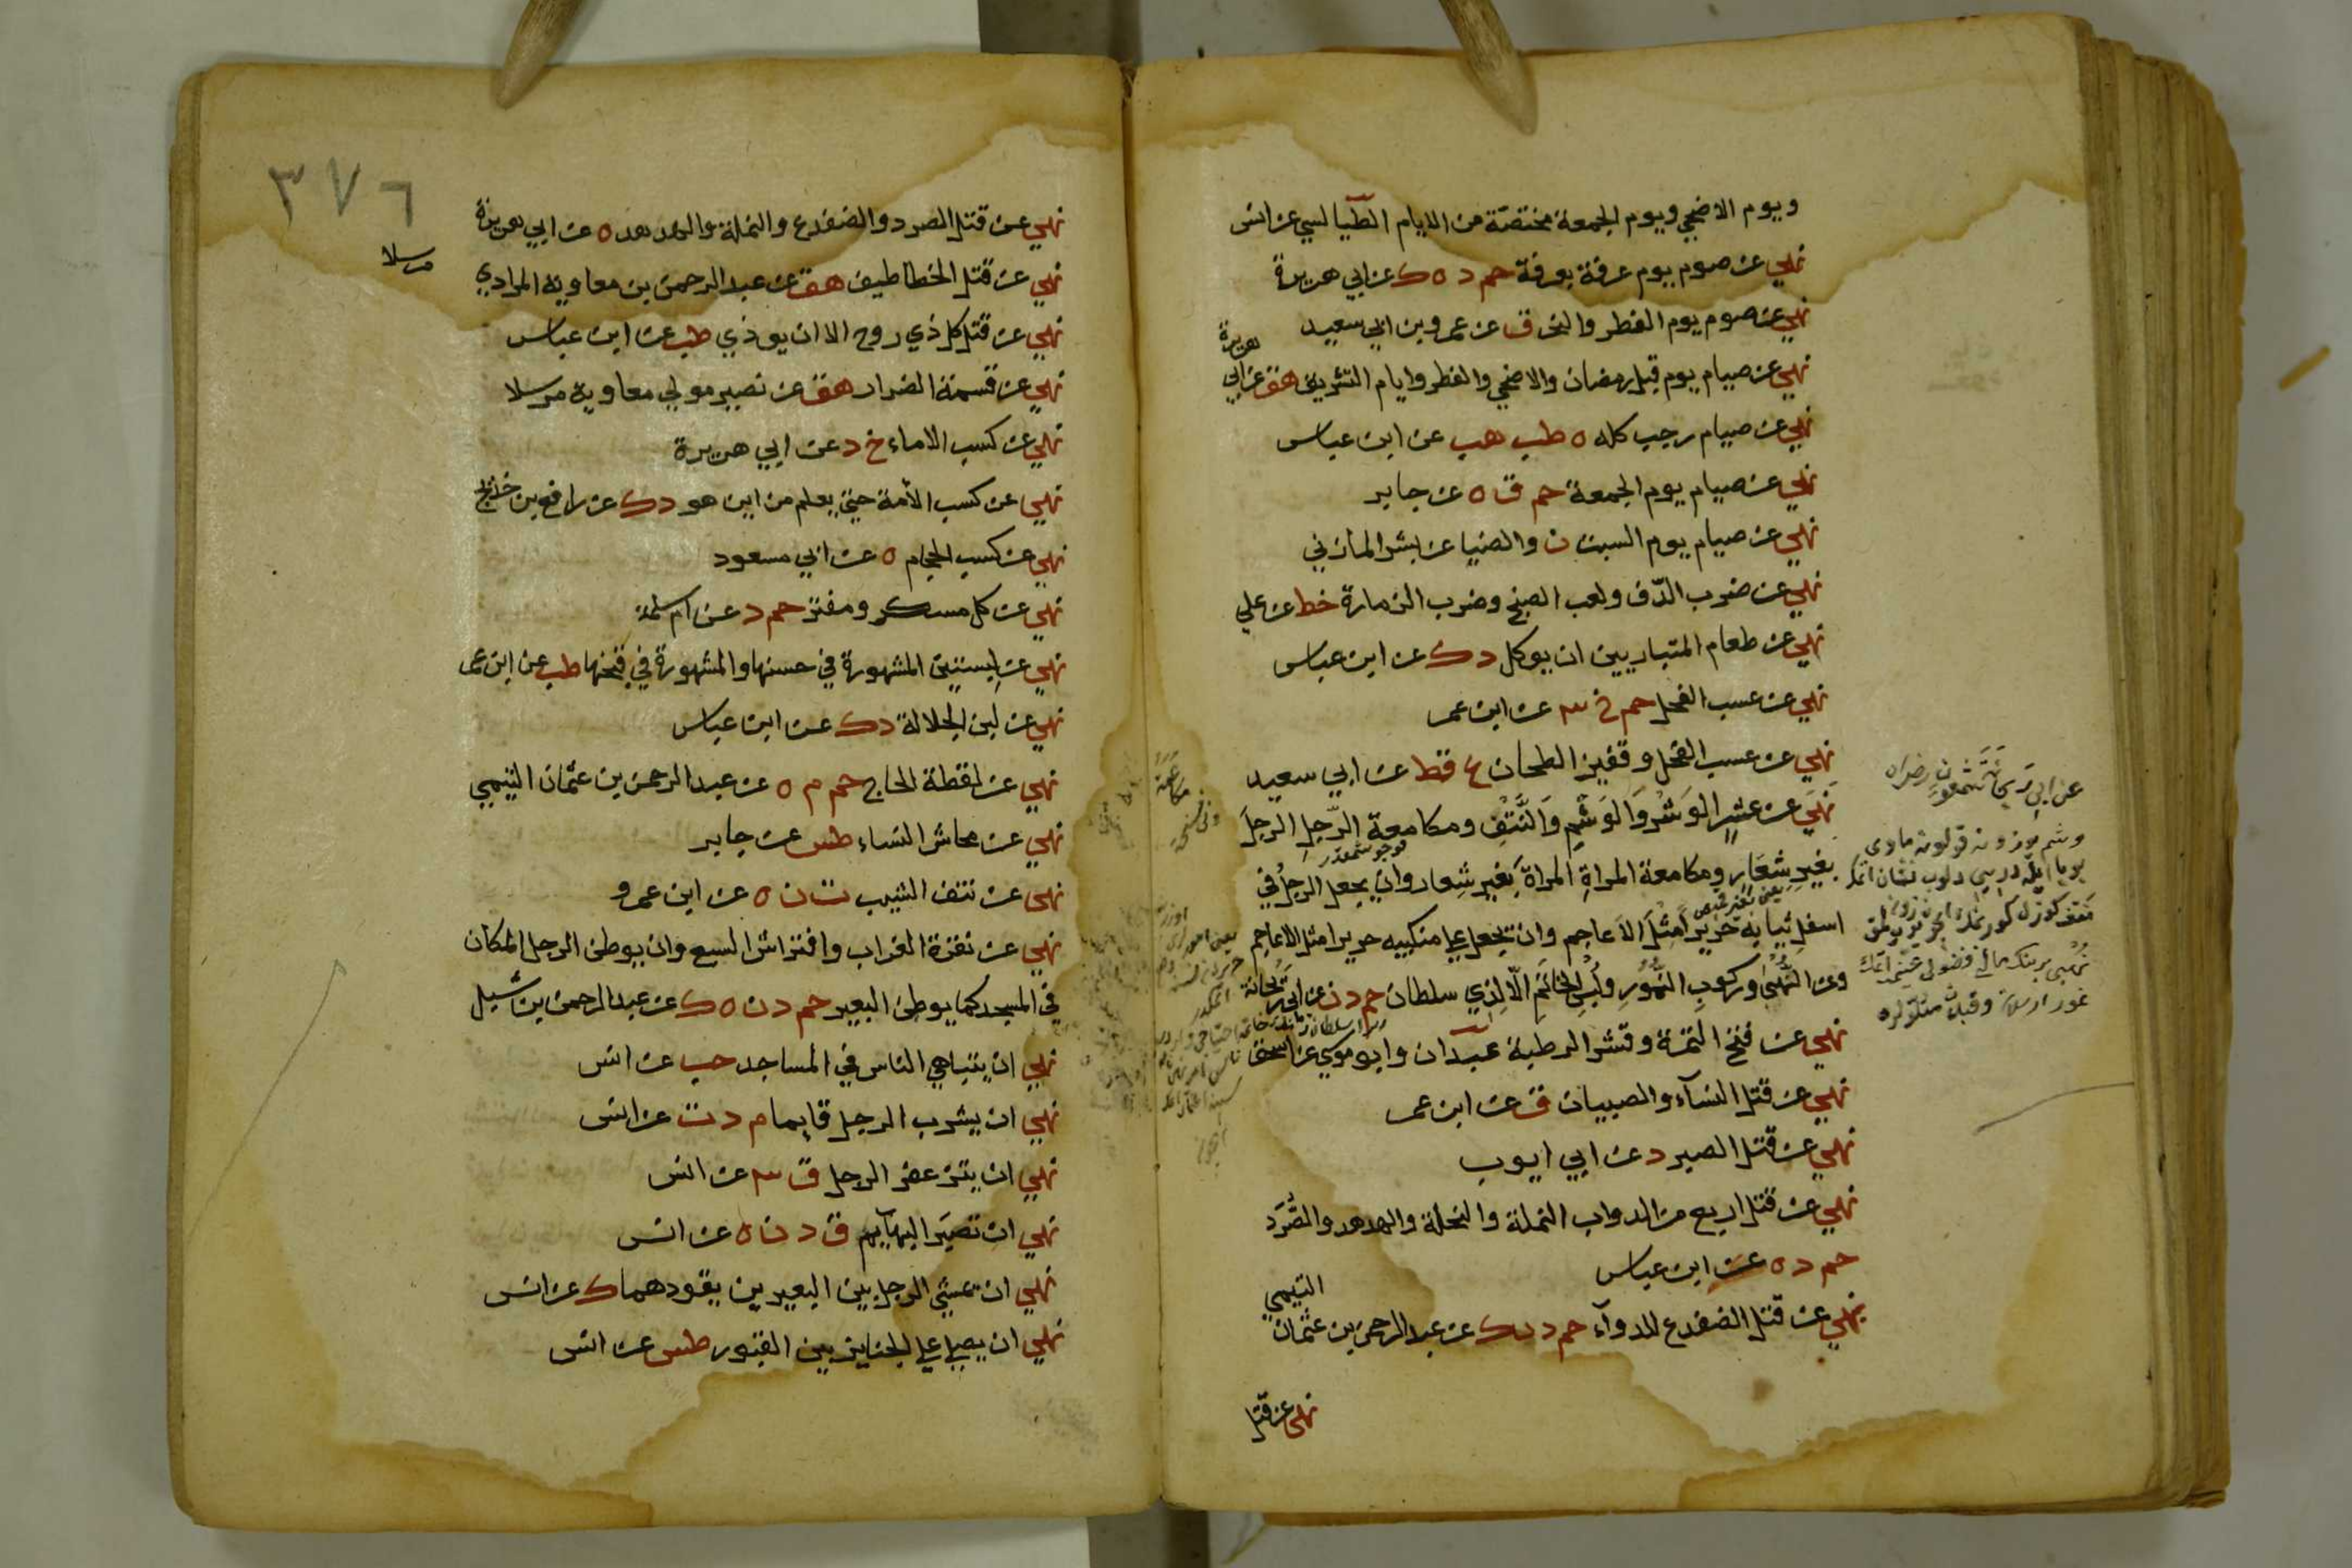 ويوم الاضحي ويوم الجمعة مختصة من الايام الطيالسي عن انس
نهي عن صوم يوم عرفة بعرفة حم د ه ك عن ابي هريرة
نهي عن صوم يوم الفطر والنحر ق عن عمر وبن ابي سعيد
نهي عن صيام يوم قبل رمضان والاضحي والفطر وايام التشريق هق عن ابي هريرة
نهي عن صيام رجب كله ه طب هب عن ابن عباس
نهي عن صيام يوم الجمعة حم ق ه عن جابر
نهي عن صيام يوم السبت ن والضيا عن بشر المازني
نهي عن ضرب الدف ولعب الصنج وضرب الزمارة خط عن علي
نهي عن طعام المتباريين ان يوكل د ك عن ابن عباس
نهي عن عسب الفحل حم خ ٣ عن ابن عمر
نهي عن عسب الفحل وقفيز الطحان ع قط عن ابي سعيد
نهي عن عشر الوشر والوشم والنتف ومكامعة الرجل الرجل
بغير شعار ومكامعة المراة المراة بغير شعار وان يجعل الرجل في
اسفل ثيابه حريرا مثل الاعاجم وان يجعل علي منكبيه حريرا مثل الاعاجم
وعن النهبى وركوب النمور ولبس الخاتم الا لذي سلطان حم د ن عن ابي ريحانة
نهي عن فتح التمرة وقشر الرطبة عبدان وابو موسي عن اسحق
نهي عن قتل النسآء والصبيان ق عن ابن عمر
نهي عن قتل الصبر د عن ابي ايوب
نهي عن قتل اربع من الدواب النملة والنحلة والهدهد والصرد
حم د ه عن ابن عباس
نهي عن قتل الضفدع للدوآء حم د ن ك عن عبد الرحمن بن عثمان التيمي
نهي عن قتل
٣٧٦
نهي عن قتل الصرد والضفدع والنملة والهدهد ه عن ابي هريرة
نهي عن قتل الخطاطيف هق عن عبد الرحمن بن معاوية المرادي مرسلا
نهي عن قتل كل ذي روح الا ان يوذي طب عن ابن عباس
نهي عن قسمة الضرار هق عن نصير مولي معاوية مرسلا
نهي عن كسب الاماء خ د عن ابي هريرة
نهي عن كسب الأمة حتي يعلم من اين هو د ك عن رافع بن خديج
نهي عن كسب الحجام ه عن ابي مسعود
نهي عن كل مسكر ومفتر حم د عن ام سلمة
نهي عن لبستين المشهورة في حسنها والمشهورة في قبحها طب عن ابن عمر
نهي عن لبن الجلالة د ك عن ابن عباس
نهي عن لقطة الحاج حم م ه عن عبد الرحمن بن عثمان التيمي
نهي عن محاش النساء طس عن جابر
نهي عن نتف الشيب ت ن ه عن ابن عمرو
نهي عن نقرة الغراب وافتراش السبع وان يوطن الرجل المكان
في المسجد كما يوطن البعير حم د ن ه ك عن عبد الرحمن بن شبل
نهي ان يتباهي الناس في المساجد حب عن انس
نهي ان يشرب الرجل قايما م د ت عن انس
نهي ان يتزعفر الرجل ق ٣ عن انس
نهي ان تصبر البهآيم ق د ن ه عن انس
نهي ان يمشي الرجل بين البعيرين يقودهما ك عن انس
نهي ان يصلي علي الجنايز بين القبور طس عن انس